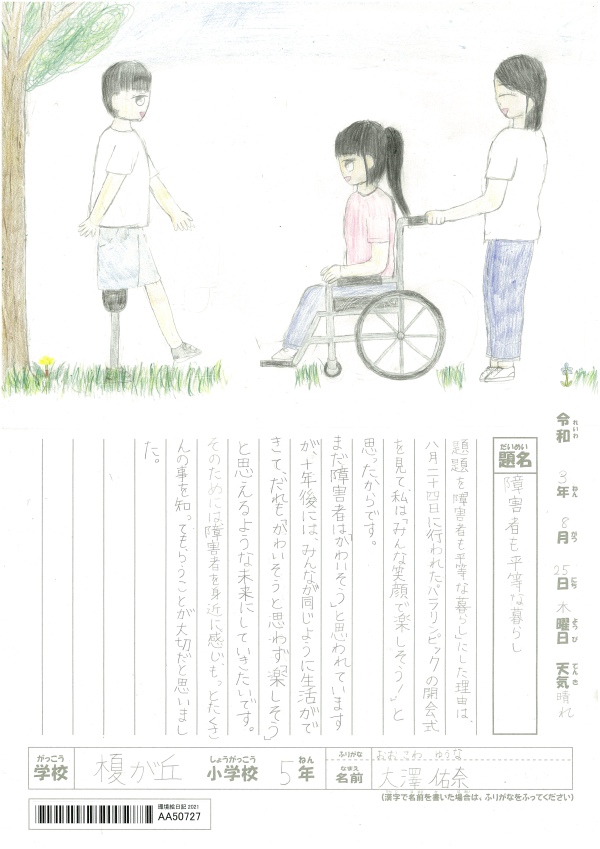 令和3年8月25日木曜日 天気晴れ
れいわ ねん がつ にち ようび てんき
だいめい
題名 障害者も平等な暮らし
題題を「障害者も平等な暮らし」にした理由は、
八月二十四日に行われたパラリンピックの開会式
を見て私は「みんな笑顔で楽しそう！」と
思ったからです。
まだ障害者は「かわいそう」と思われています
が、十年後には、みんなが同じように生活がで
きて、だれも「かわいそう」と思わず「楽しそう」
と思えるような未来にしていきたいです。
そのためには、障害者を身近に感じ、もっとたくさ
んの事を知ってもらうことが大切だと思いまし
た。
がっこう しょうがっこう ねん
学校 榎が丘 小学校 5年
ふりがな おおさわ ゆうな
なまえ
名前 大澤 佑奈
(漢字で名前を書いた場合は、ふりがなをふってください)
環境絵日記 2021
AA50727